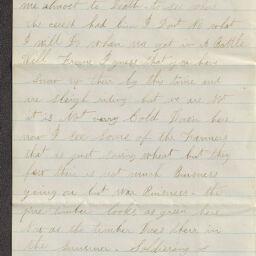 me almost to Death to see how
the cused had him I Dont No what
I will Do when we get in A Battle
Well Frank I guess that you have
Snow up their by this time and
are Sleigh riding but we are Not
it is Not very Cold Down here
now I see Some of the Farmers
that is just Sowing wheat but they
for their is not much Buisness
going on but War Buisness the
pine timber looks as green here
as the timber Does there in
the Summer Soldiering